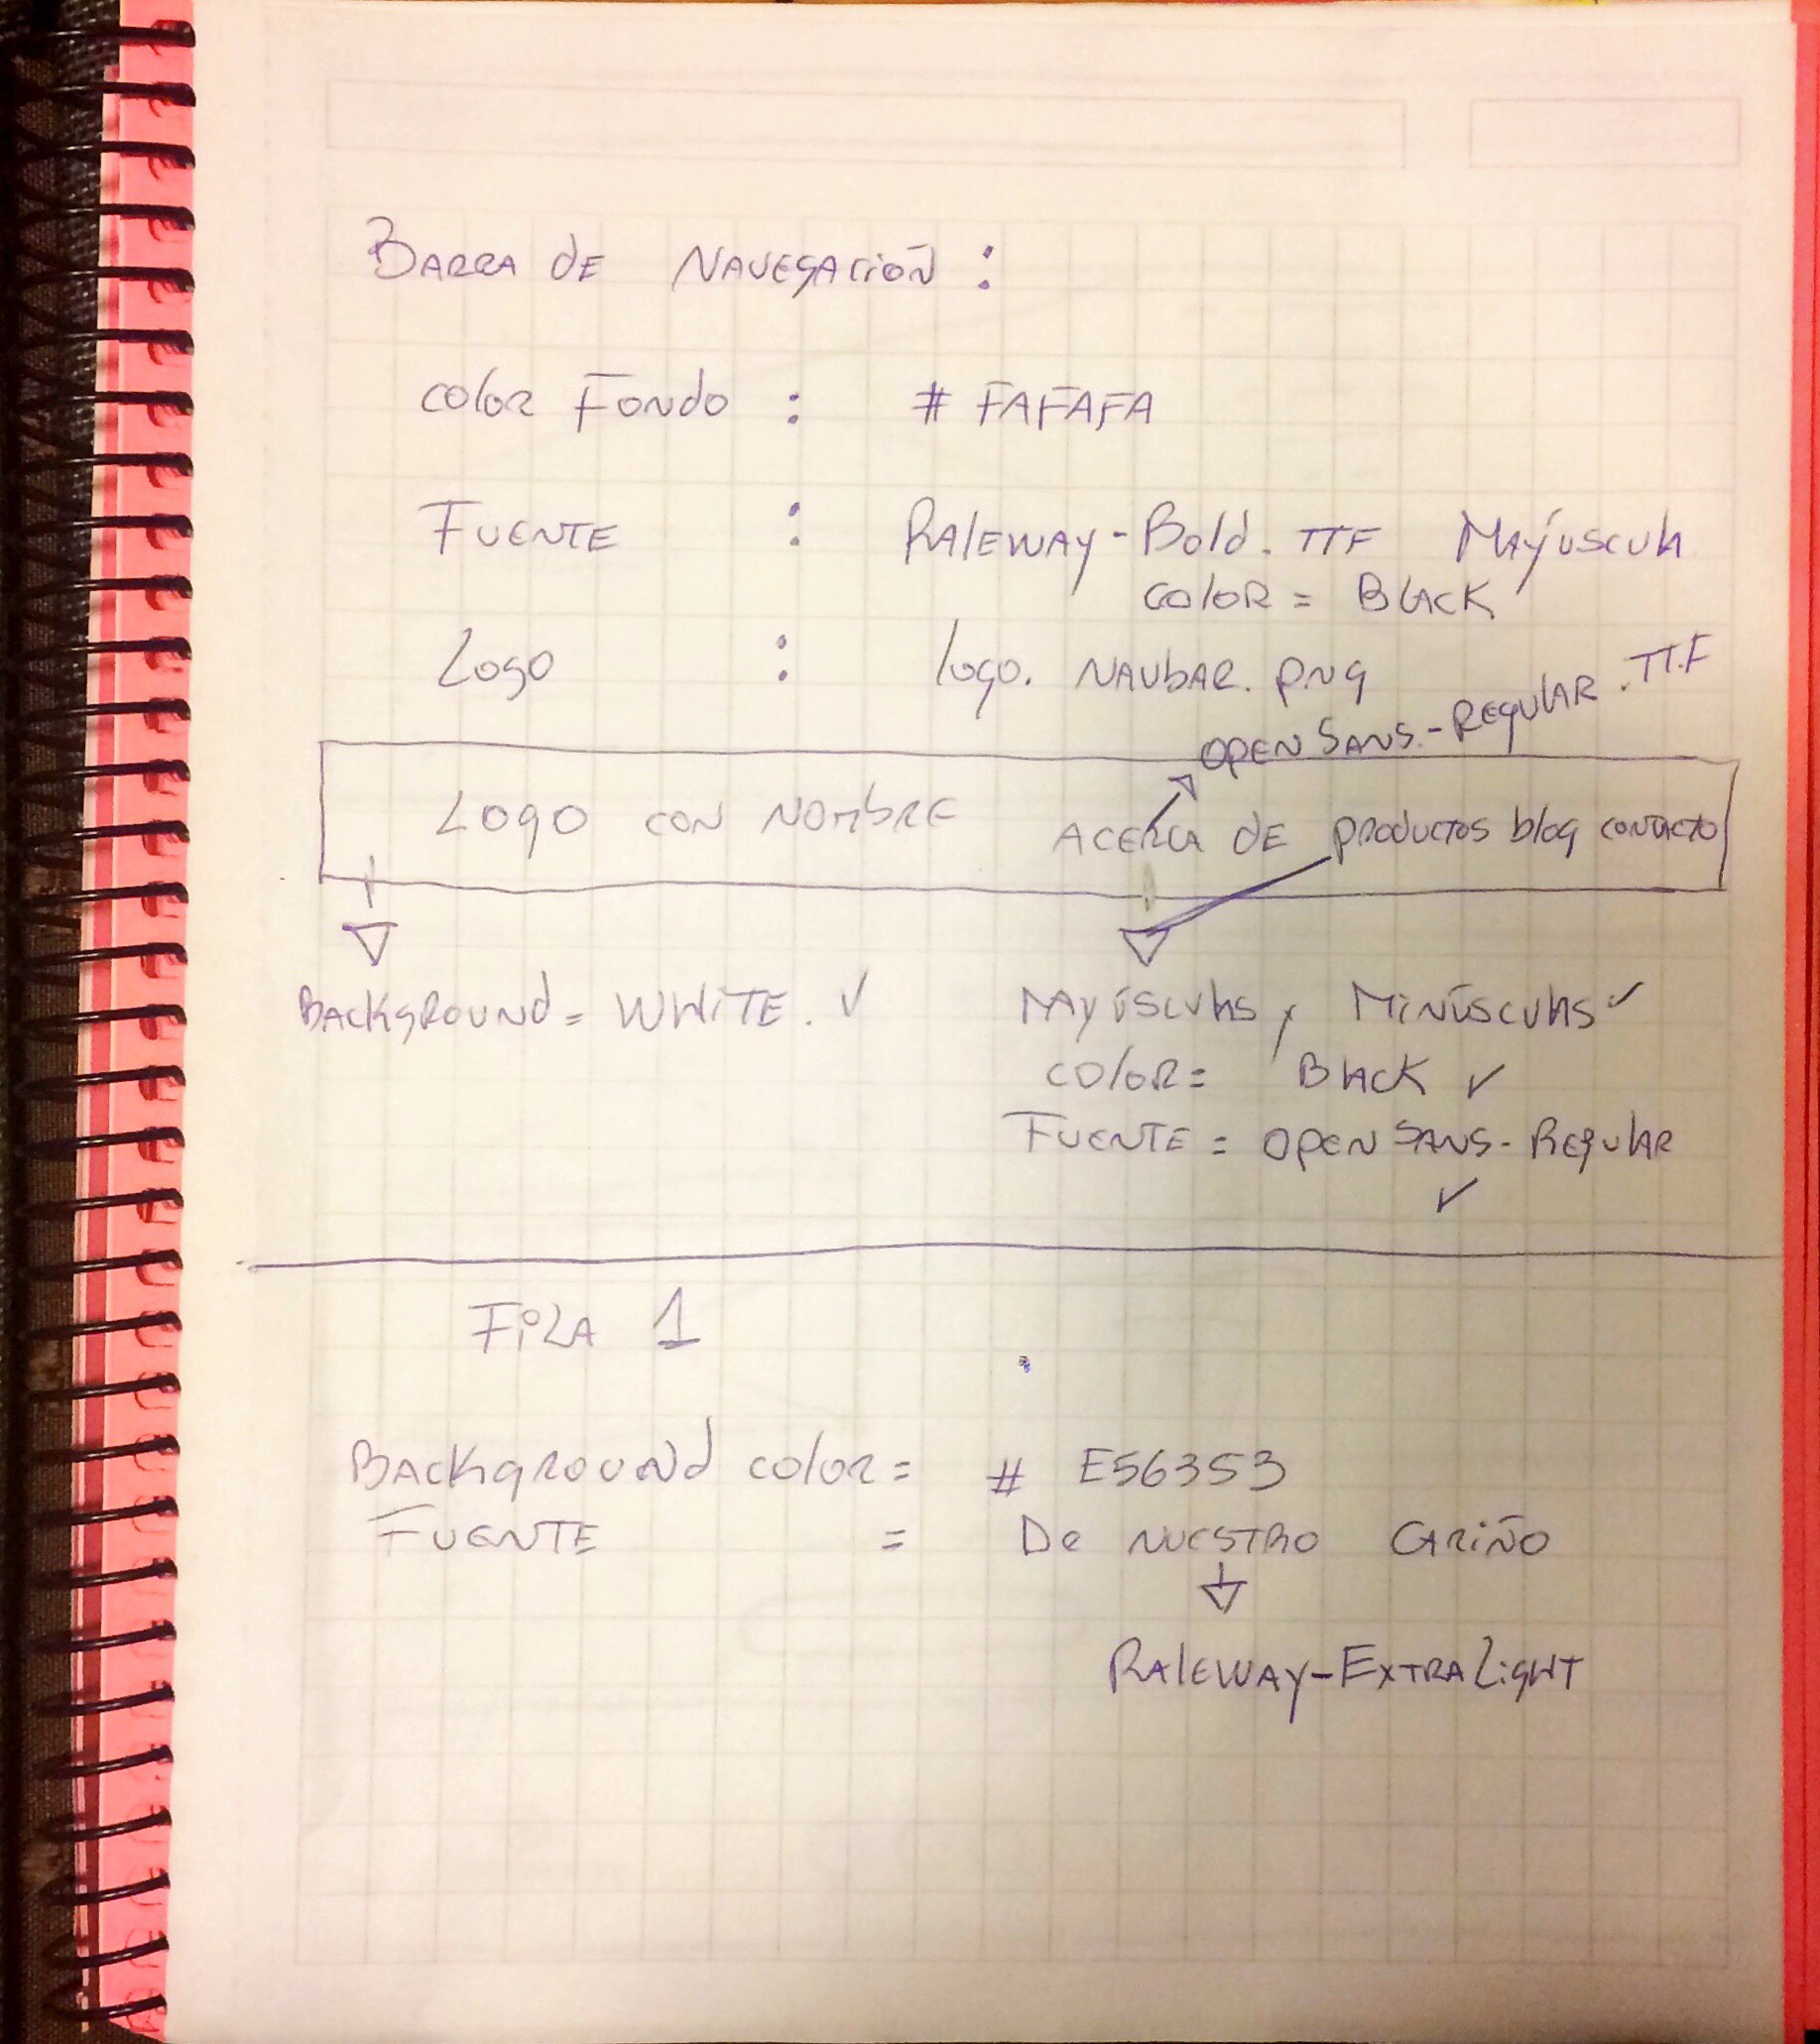 BARRA dE NAVEGACIÓN :
COLOR FONDO : # FAFAFA
FUENTE : RALEWAY-Bold. TTF MAYÚSCULA
COLOR = BLACK
LOGO : logo. NAVbAR. PNG
OPEN SANS.-REGULAR .TTF
LOGO CON NOMBRE ACERCA DE PRODUCTOS blog CONTACTO
BACKGROUNd = WHiTE. ✓ MAYÚSCULAS y MiNÚSCULAS ✓
COLOR = BLACK ✓
FUENTE = OPEN SANS-REGULAR
✓
FiLA 1
BACKGROUNd COLOR = # E56353
FUENTE = De NUESTRO CARiÑO
RALEWAY-EXTRALiGHT